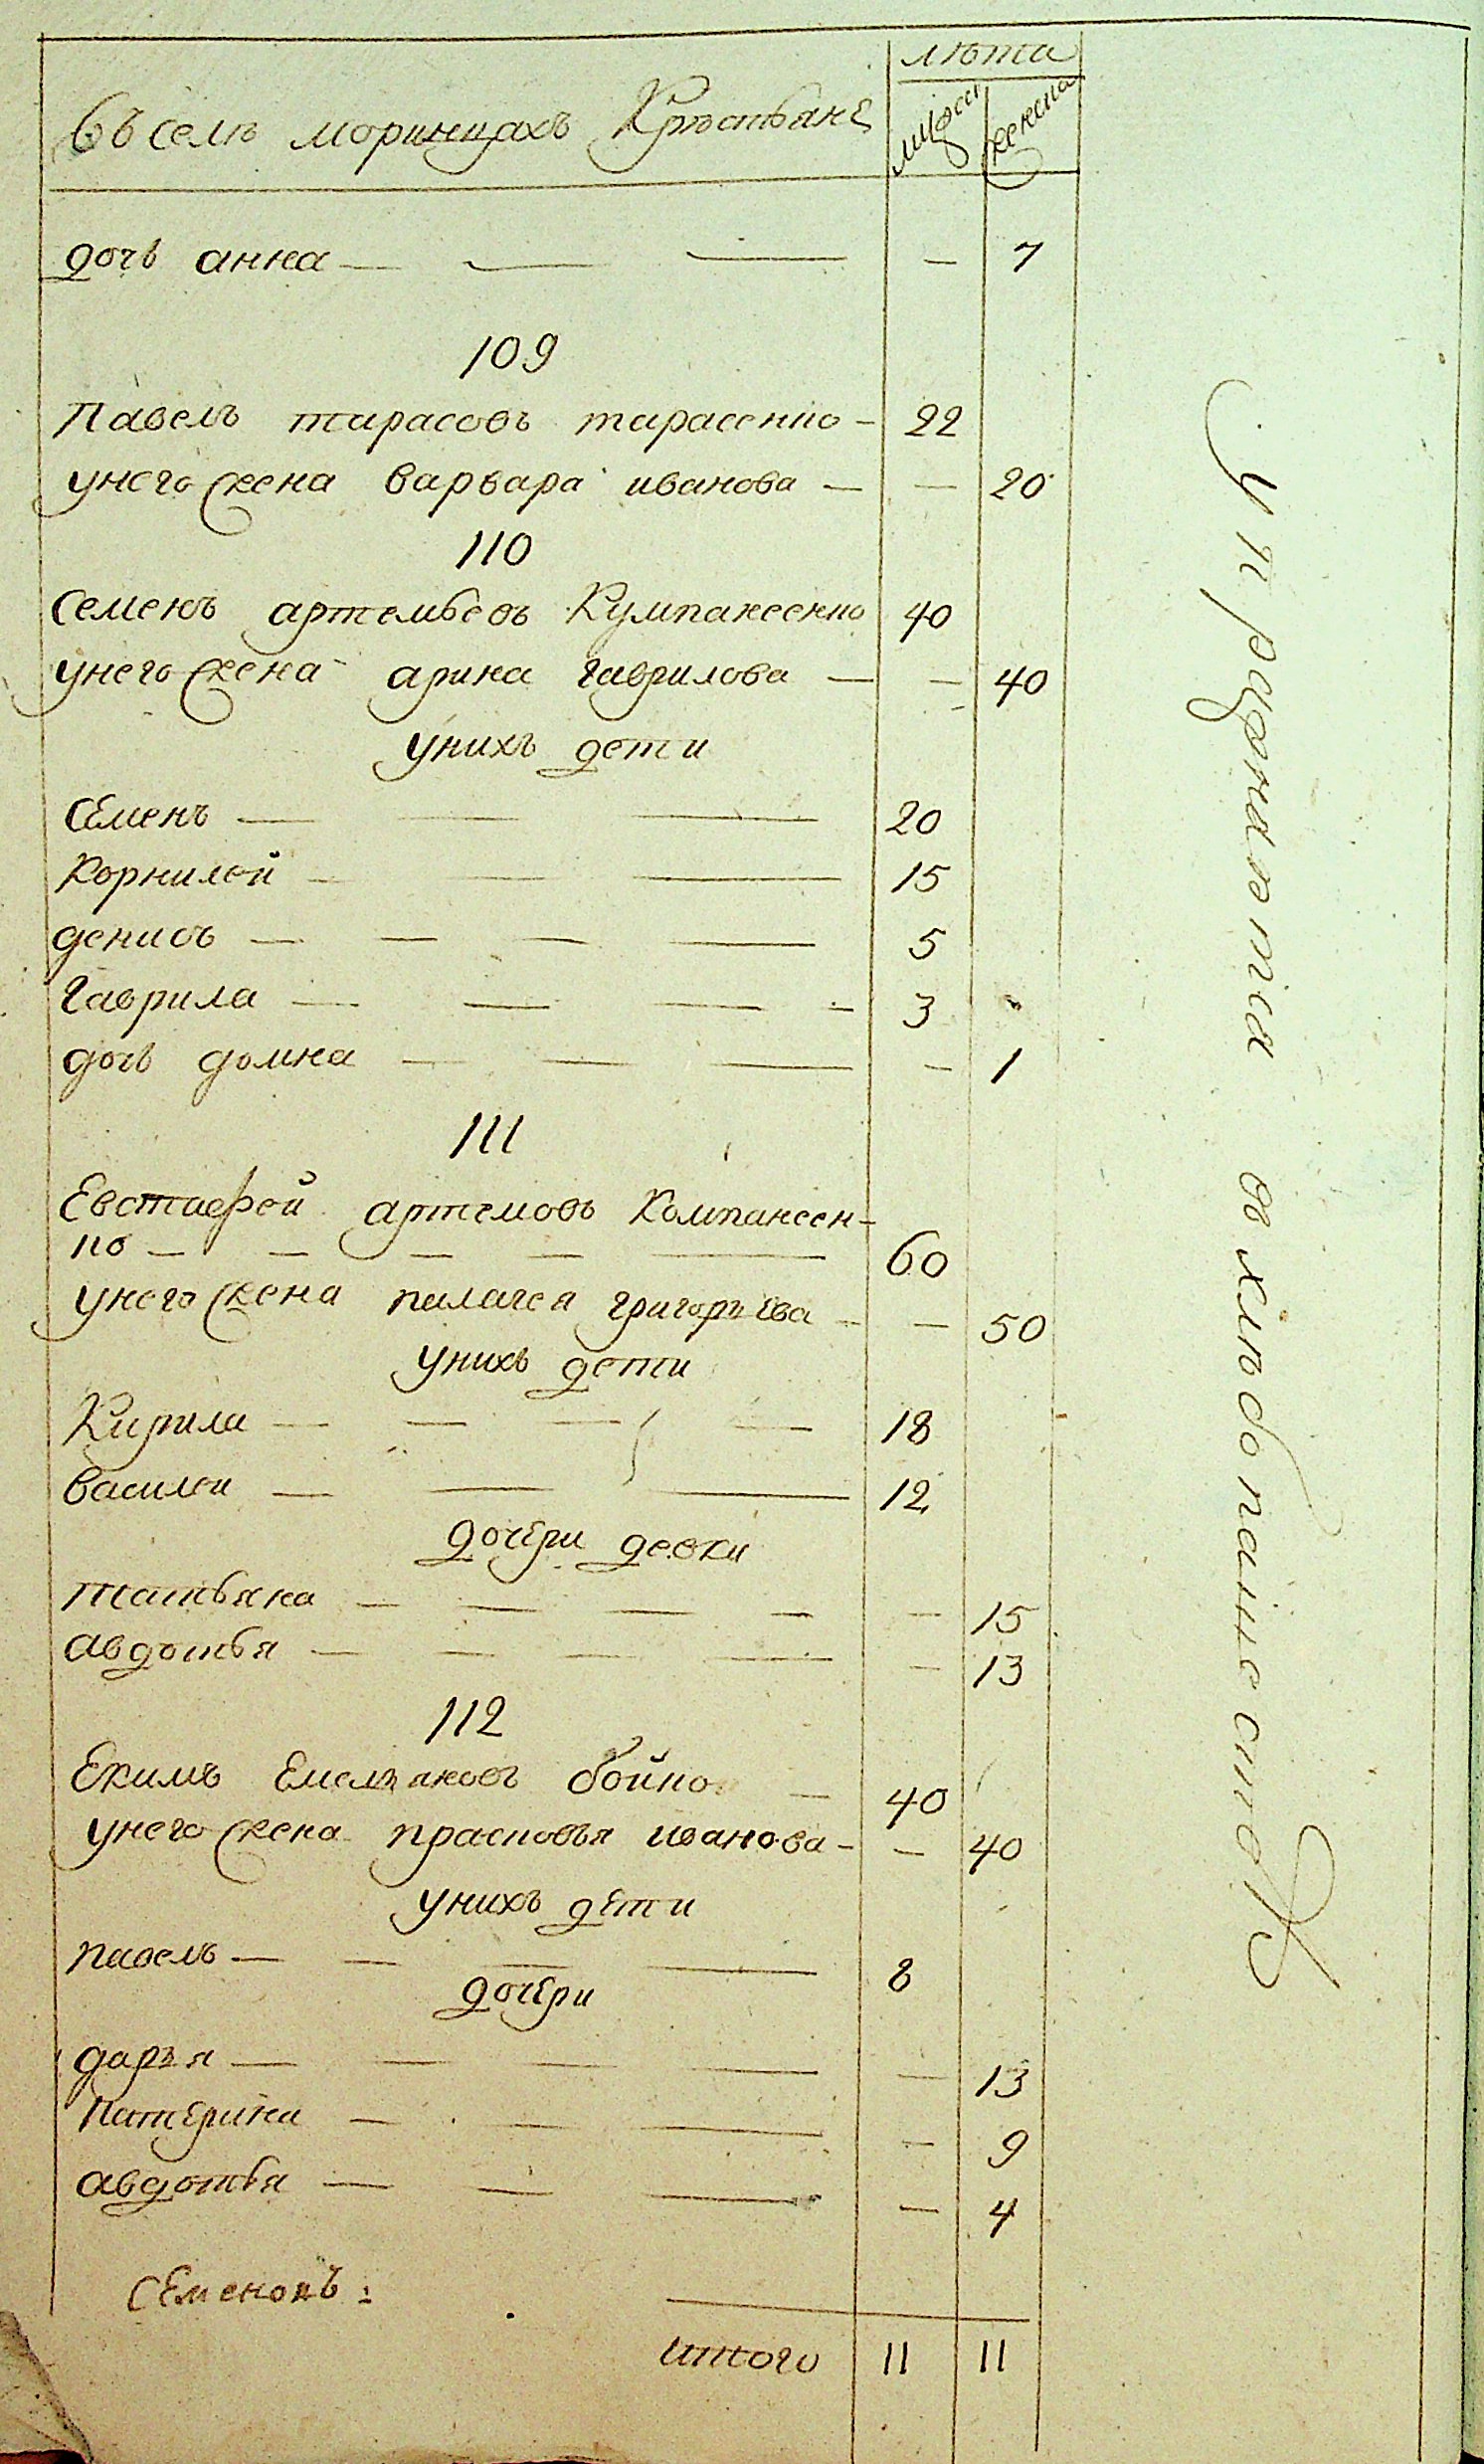 лѣта
въ селѣ моринцахъ Крѣстьянѣ
мужск женска
дочь анна — — — — 7
109
Павелъ тарасовъ тарасенко — 22
унего жена варвара иванова — — 20
110
Семенъ артемьевъ Кумпанеенко 40
унего жена арина гаврилова — — 40
унихъ дети
Семенъ — — — 20
Корнилей — — — 15
денисъ — — — — 5
гаврила — — — — 3
дочь домна — — — — 1
111
Евстафей артемовъ Компанеен-
ко — — — — — 60
унего жена палагея григорьева — — 50
унихъ дети
Кирила — — — — 18
василей — — — 12
дочери девки
татьяна — — — — — 15
авдотья — — — — — 13
112
Екимъ Емельяновъ бойко — 40
унего жена прасковья иванова — — 40
унихъ дети
павелъ — — — — 8
дочери
дарья — — — — — 13
катерина — — — — 9
авдотья — — — — 4
Семенокъ :
итого 11 11
упражняэтся в хлѣбопашество